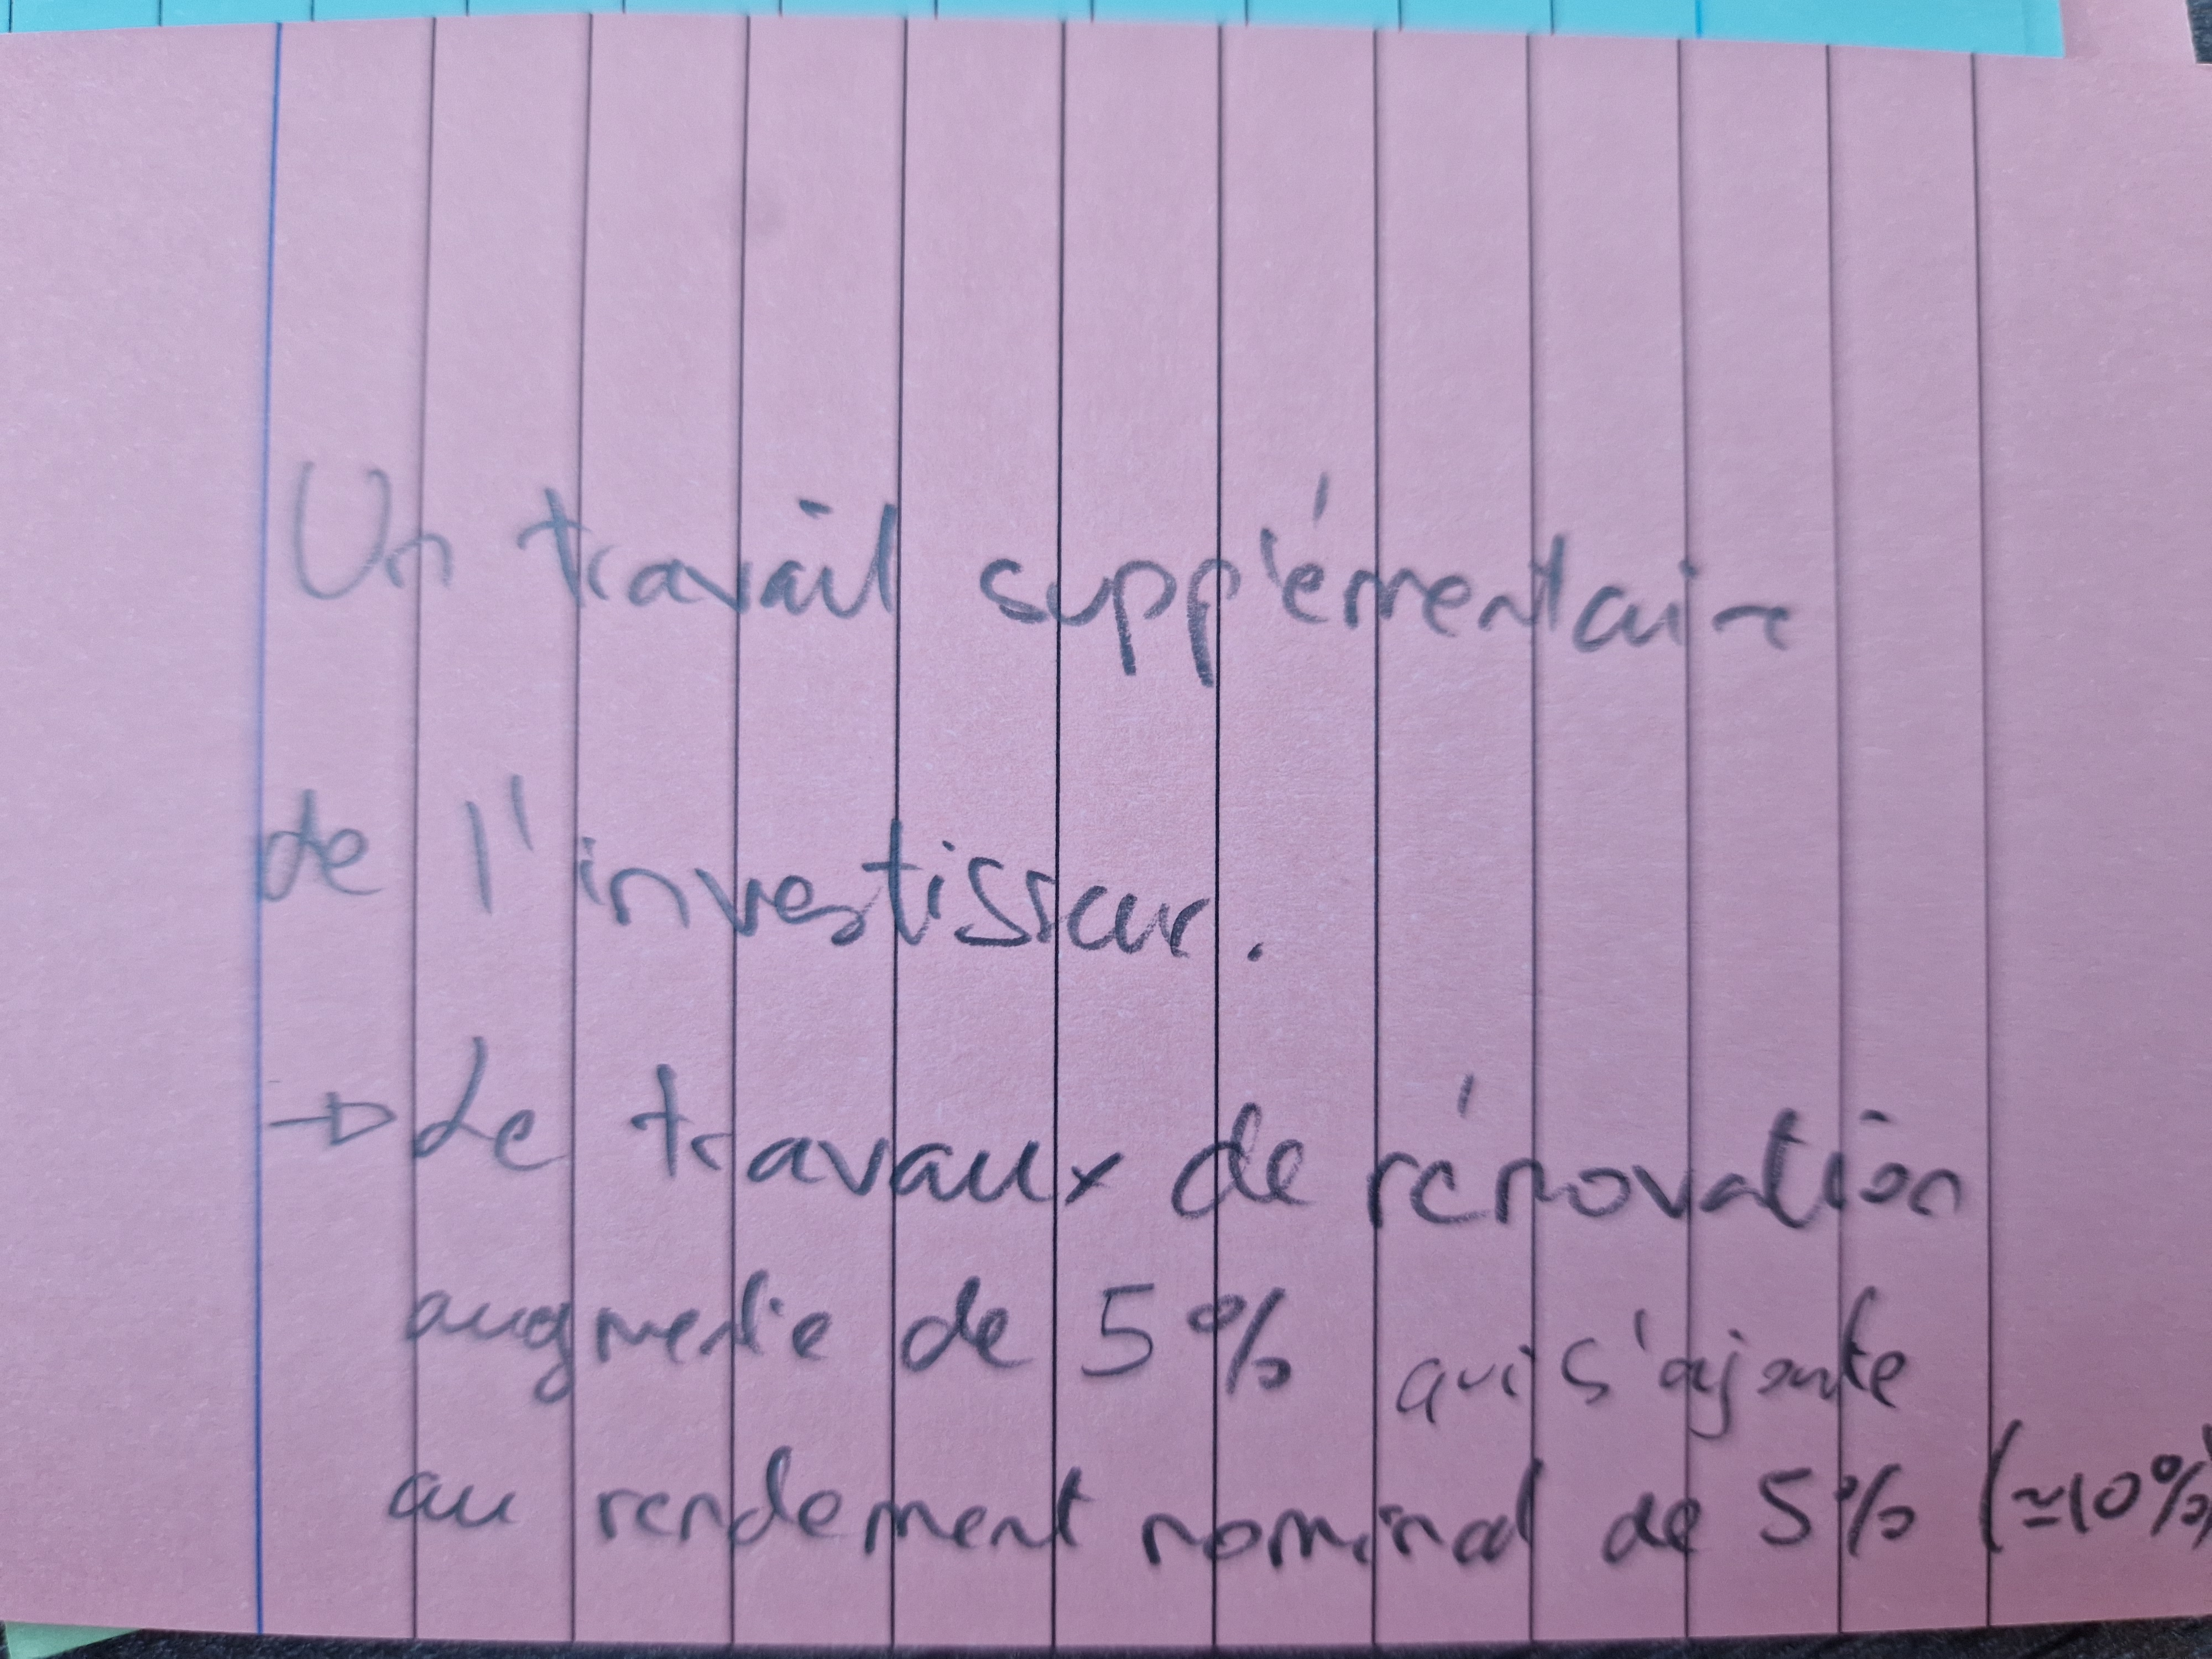 Un travail supplémentaire
de l'investisseur.
→ Le travaux de rénovation
augmente de 5% qui s'ajoute
au rendement nominal de 5% (≈10%)